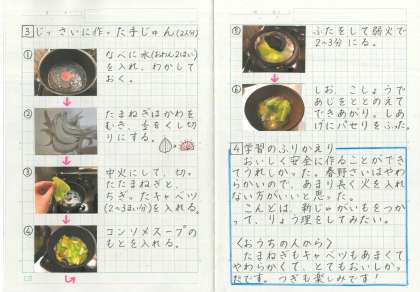 3 じっさいに作った手じゅん(2人分)
①
なべに水(おわん2はい)
を入れ、わかして
おく。
②
たまねぎはかわを
むき、金をくし切
りにする。
③
中火にして、切っ
たたまねぎと、
ちぎったキャベツ
(2~3まい分)を入れる。
④
コンソメスープの
もとを入れる。
⑤
ふたをして弱火で
2~3分にる。
⑥
しお、こしょうで
あじをととのえて
できあがり。しあ
げにパセリをふった。
4 学習のふりかえり
おいしく安全に作ることができ
てうれしかった。春野さいはやわ
らかいので、あまり長く火を入れ
ない方がいいと思った。
こんどは、新じゃがいもをつかっ
て、りょう理をしてみたい。
<おうちの人から>
たまねぎもキャベツもあまくて
やわらかくて、とてもおいしかっ
たです。つぎも楽しみです!